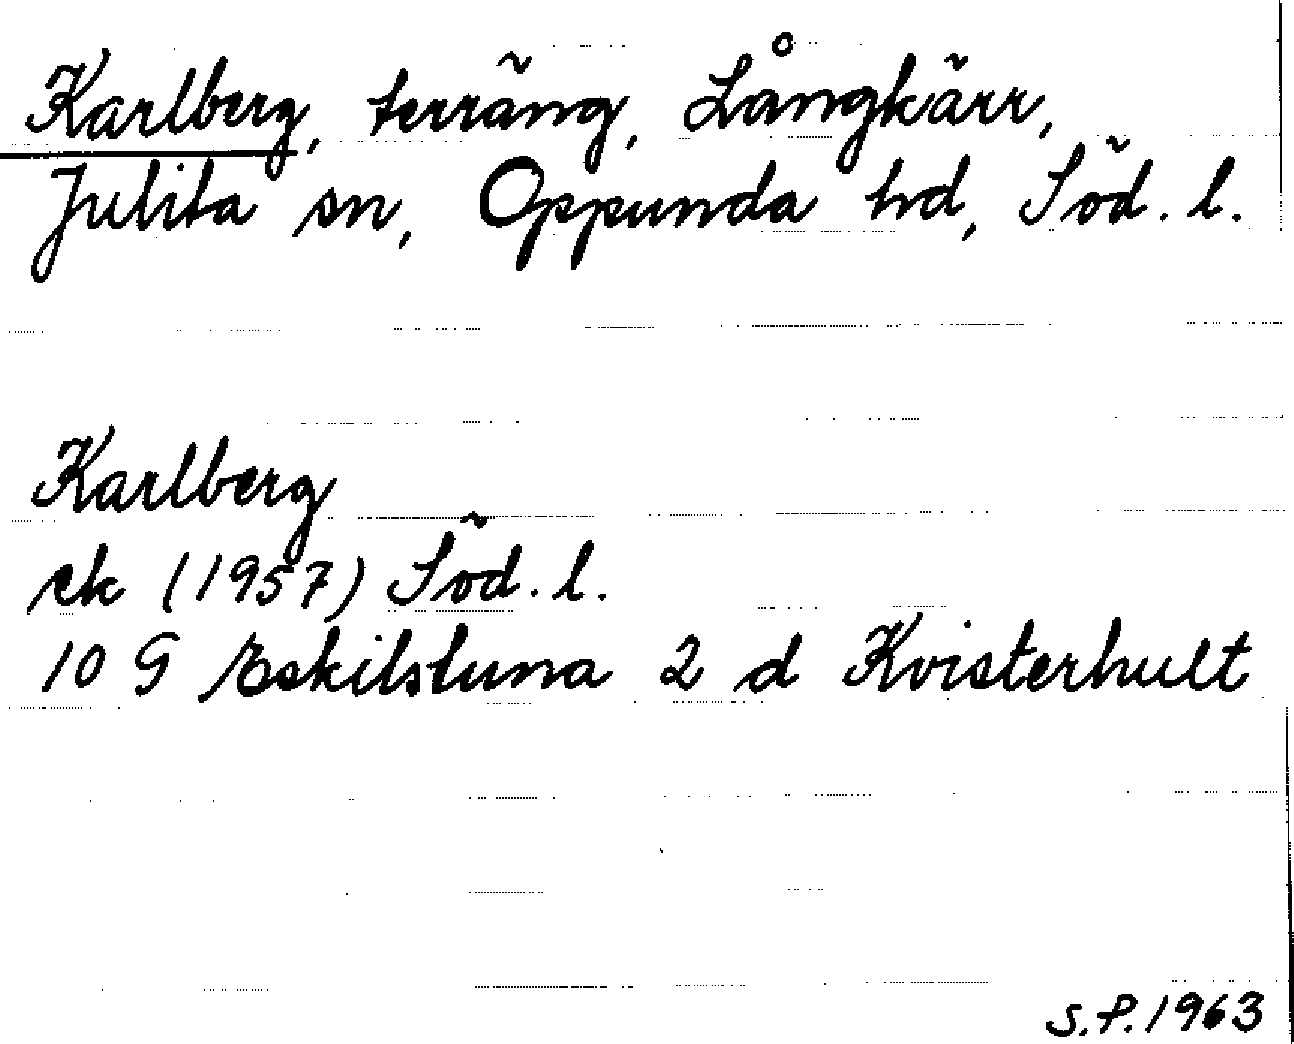 Karlberg, terräng, Långkärr,
Julita sn, Oppunda hd, Söd. l.
Karlberg
ek (1957) Söd. l.
10 G Eskilstuna 2 d Kvisterhult
S.P. 1963